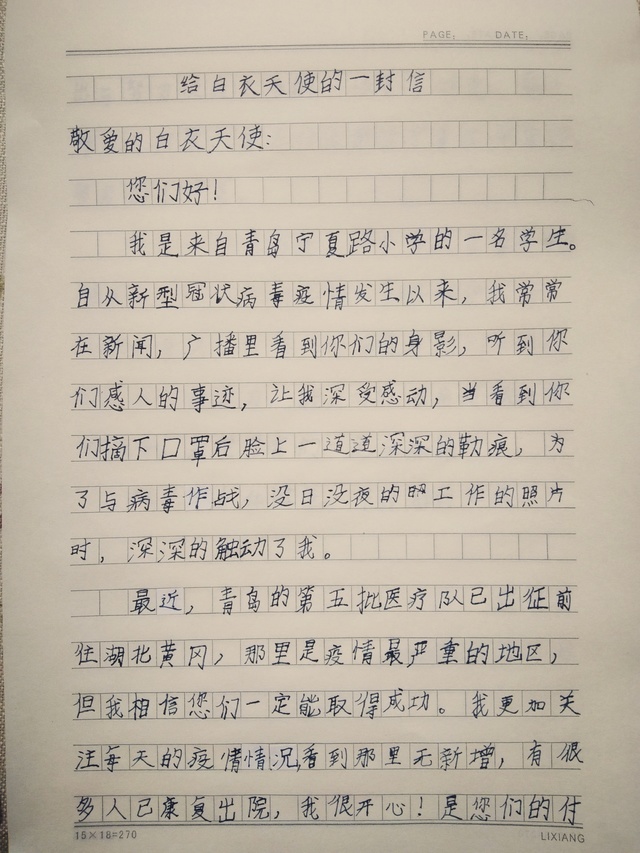 PAGE: DATE:
给白衣天使的一封信
敬爱的白衣天使:
您们好!
我是来自青岛宁夏路小学的一名学生。
自从新型冠状病毒疫情发生以来,我常常
在新闻,广播里看到你们的身影,听到你
们感人的事迹,让我深受感动,当看到你
们摘下口罩后脸上一道道深深的勒痕,为
了与病毒作战,没日没夜的工作的照片
时,深深的触动了我。
最近,青岛的第五批医疗队已出征前
住湖北黄冈,那里是疫情最严重的地区,
但我相信您们一定能取得成功。我更加关
注每天的疫情情况,看到那里无新增,有很
多人已康复出院,我很开心!是您们的付
15×18=270 LIXIANG